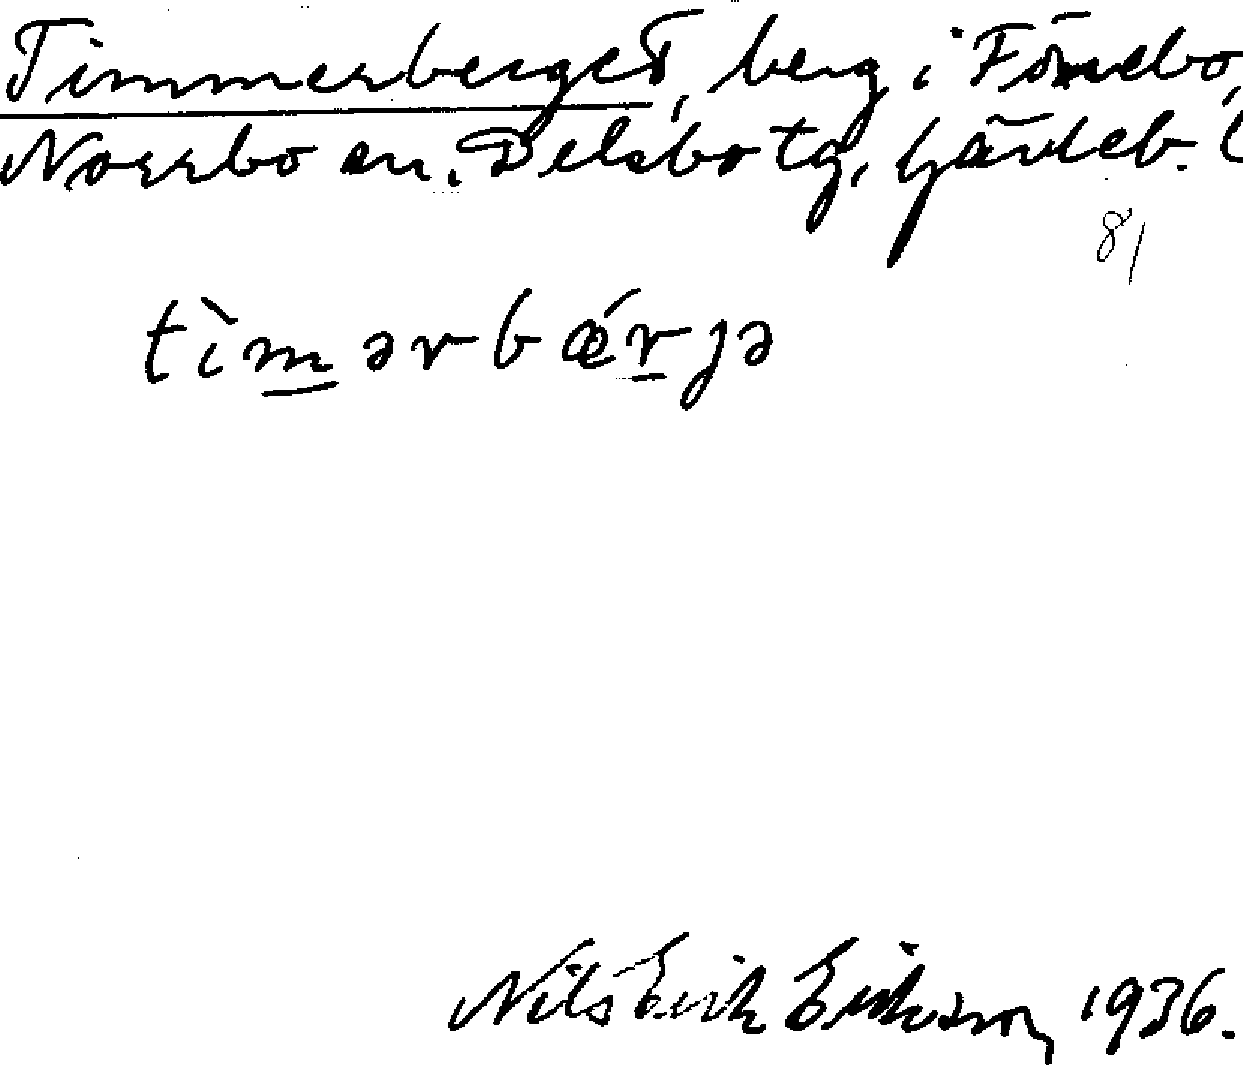 Timmerberget, berg i Fönebo,
Norrbo sn. Delsbo tg, Gävleb. l
81
tìm̲ərbǽr̲jə
Nils Erik Eriksson, 1936.